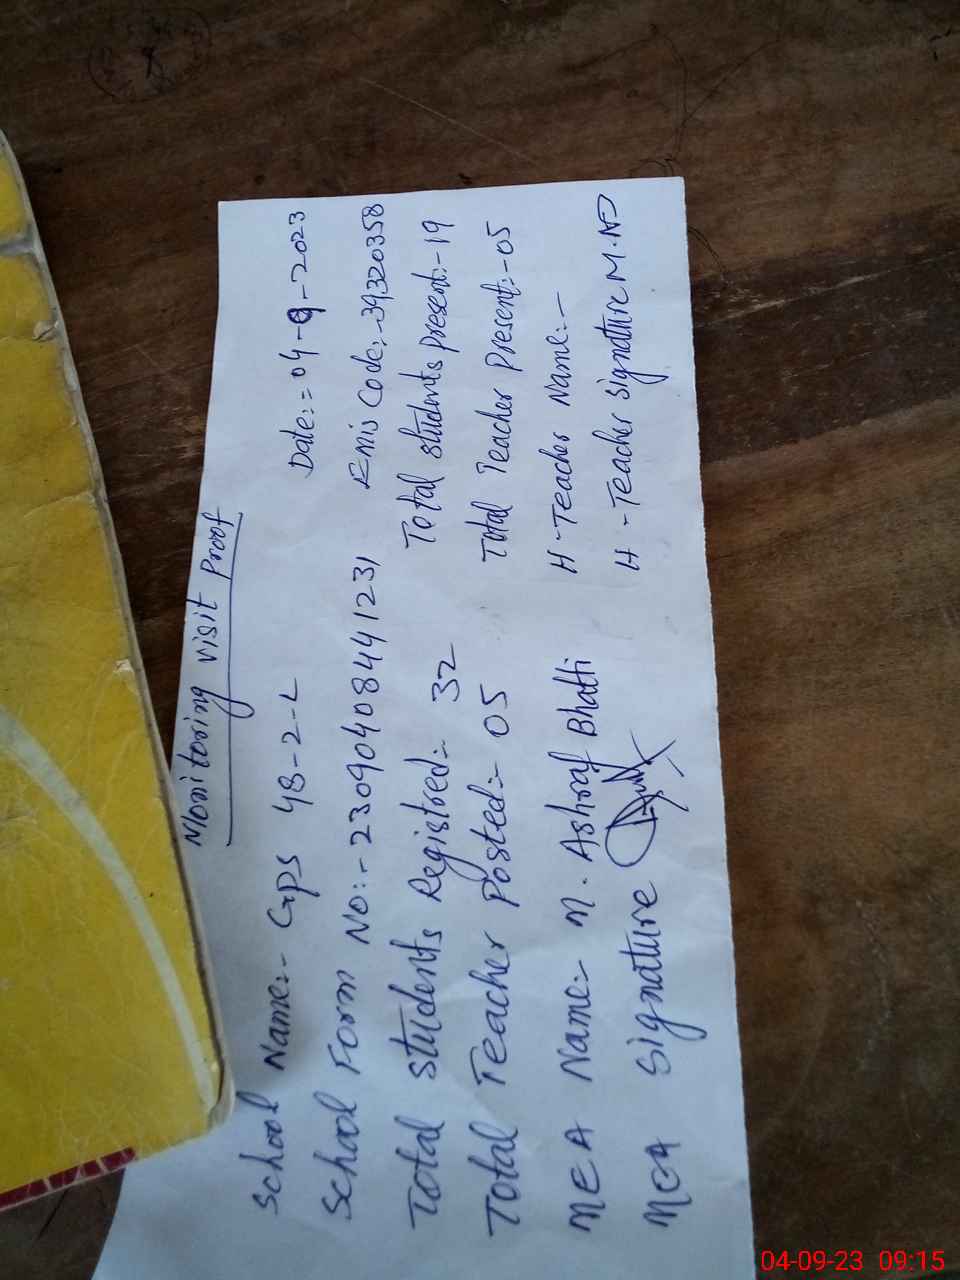 Monitoring visit Proof
School Name:- GPS 48-2-L Date:= 04-9-2023
School Form No:- 23090408441231 Emis Code:- 39320358
Total students Registred:- 32 Total students present:- 19
Total Teacher Posted:- 05 Total Teacher present:- 05
MEA Name:- M. Ashraf Bhatti H-Teacher Name:-
MEA Signature H-Teacher Signature
04-09-23 09:15